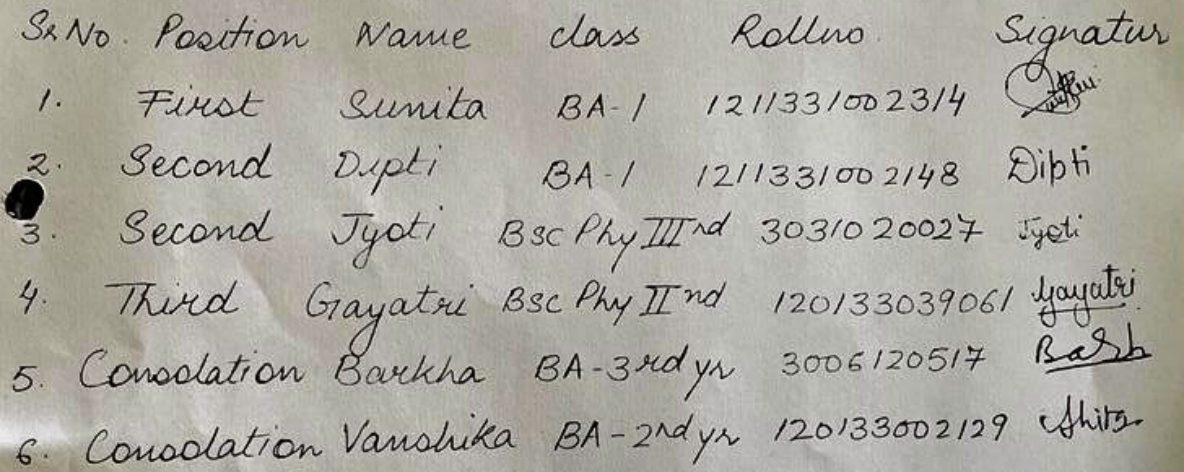 Sr No. Position Name class Rollno. Signatur
1. First Sunita BA-1 121133100 2314
2. Second Dipti BA-1 121133100 2148 Dipti
3. Second Jyoti Bsc Phy IIIrd 3031020027 Jyoti
4. Third Gayatri Bsc Phy IInd 120133039061 Gayatri
5. Consolation Barkha BA-3rd yr 3006120517
6. Consolation Vanshika BA-2nd yr 120133002129